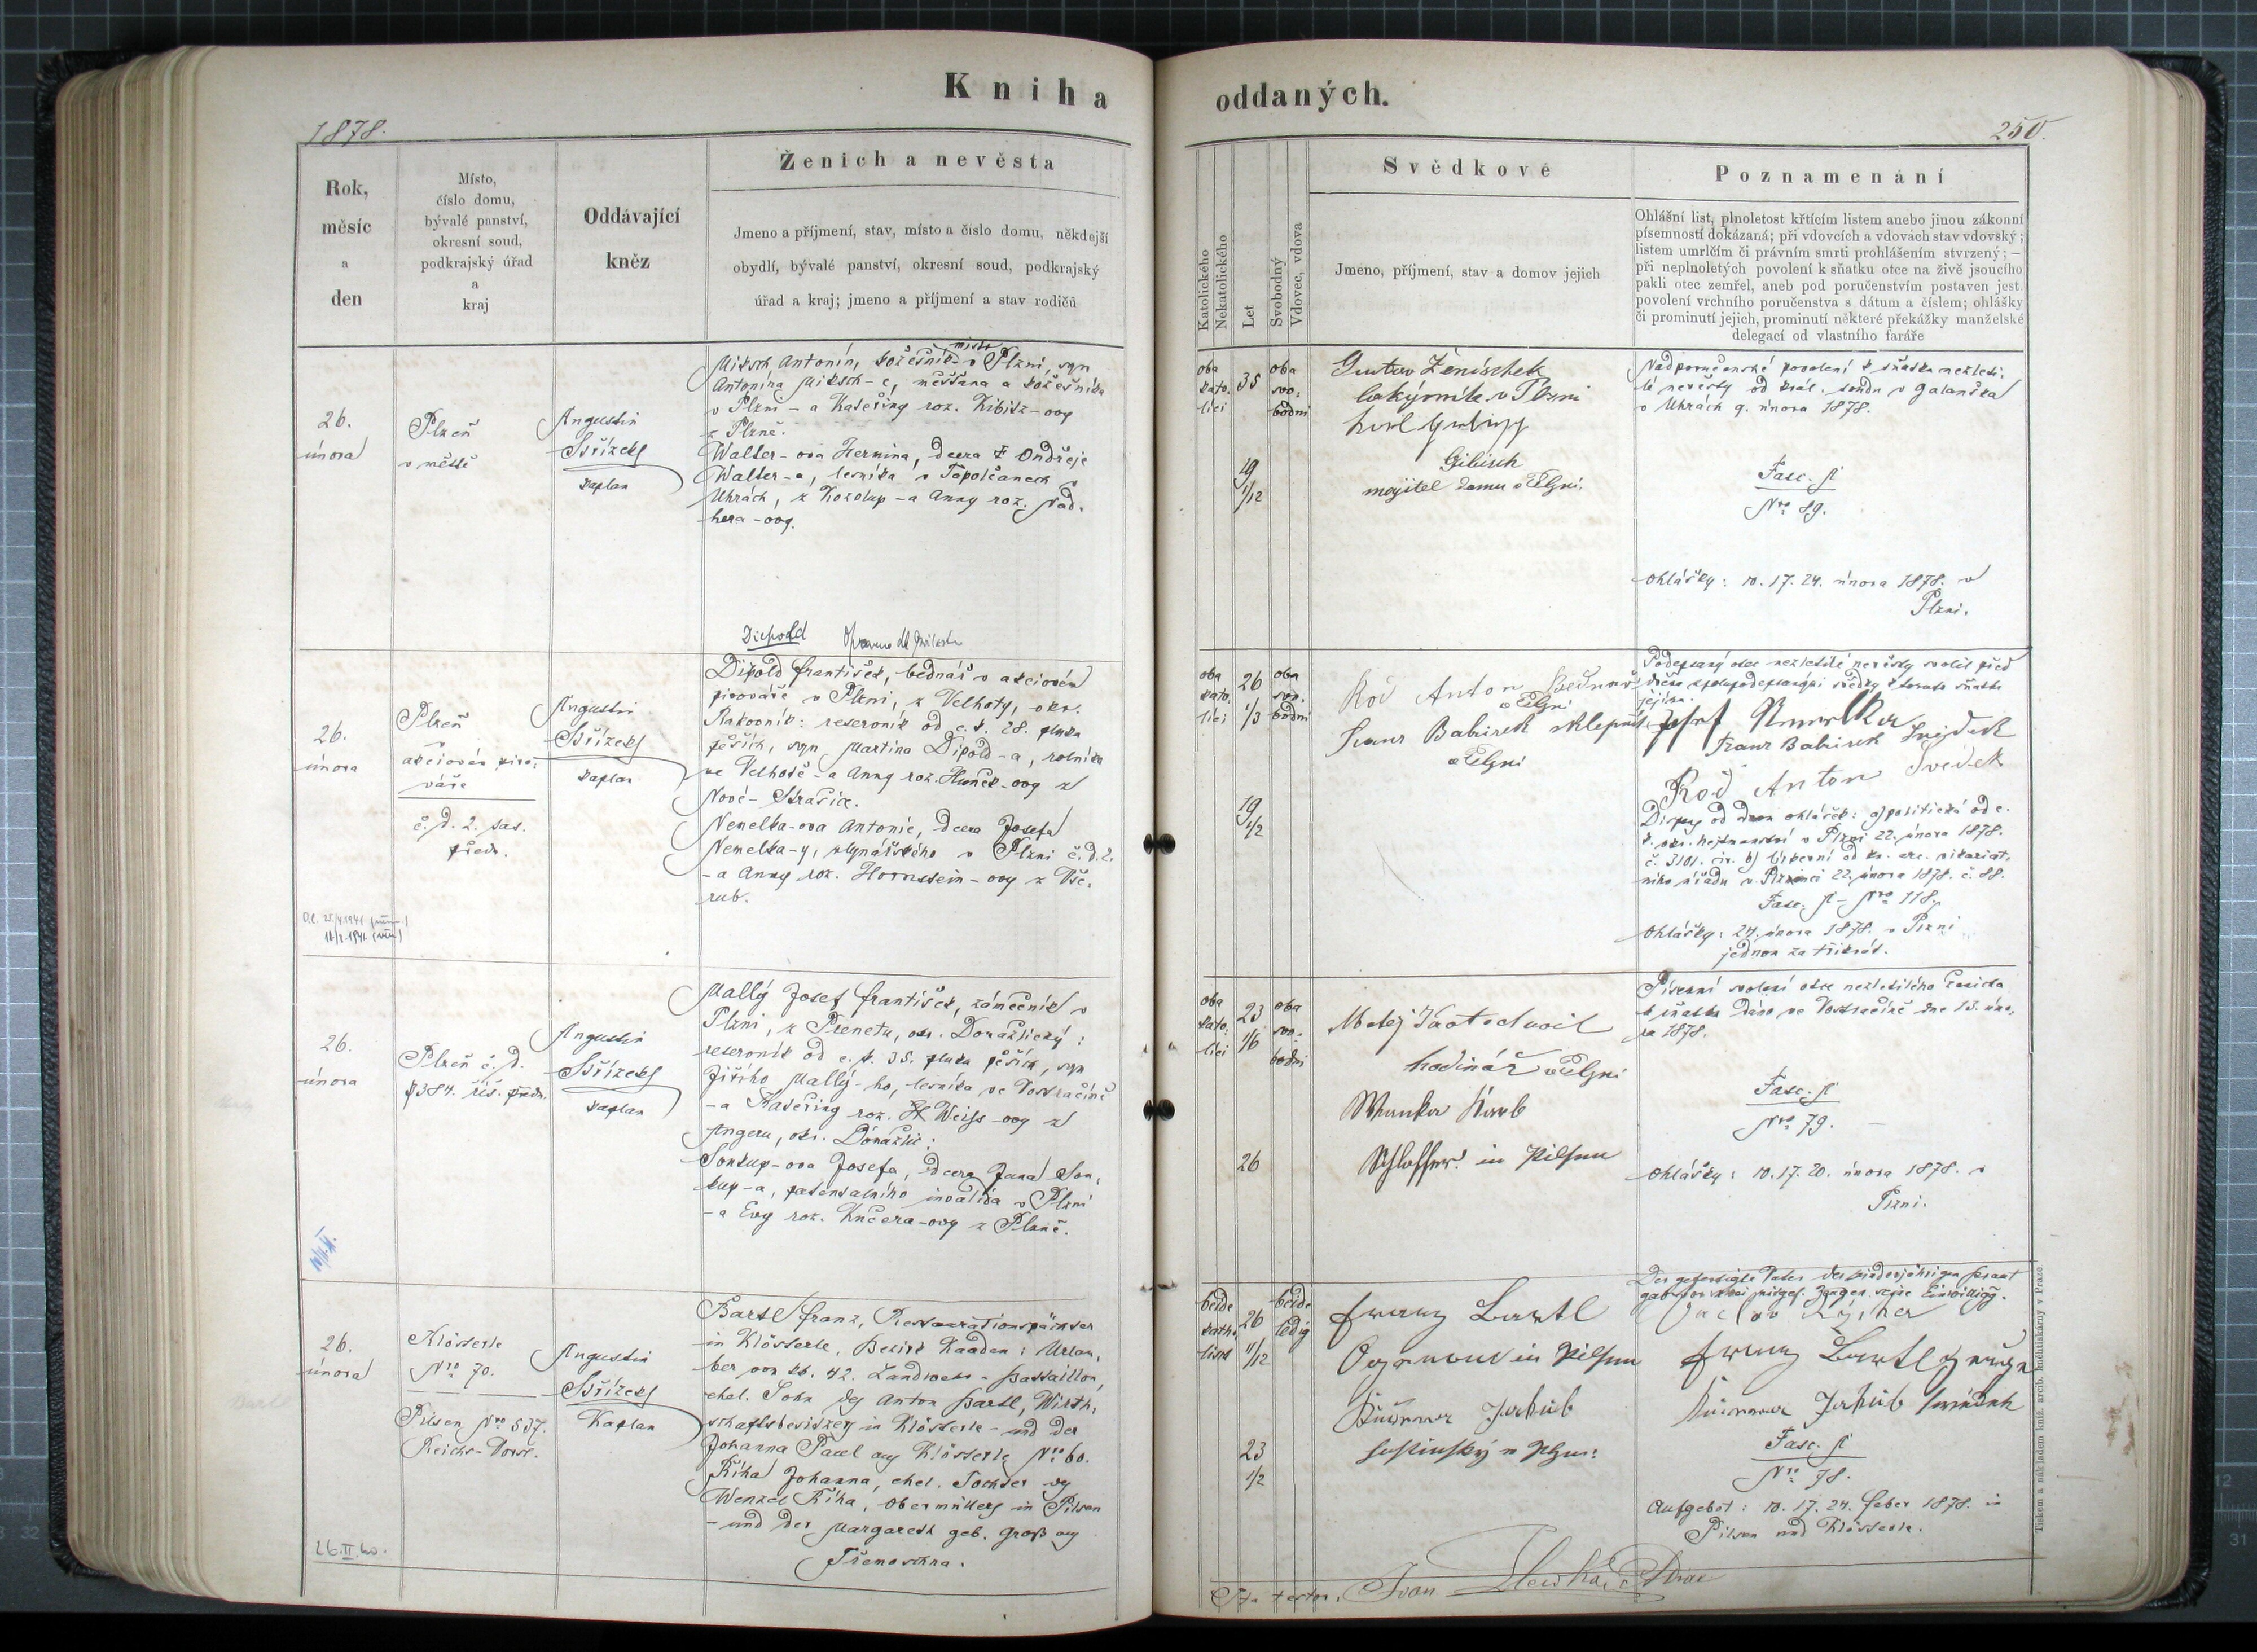 Kniha oddaných.
1878.
250.
Rok,
měsíc
a
den
Místo,
číslo domu,
bývalé panství,
okresní soud,
podkrajský úřad
a
kraj
Oddávající
kněz
Ženich a nevěsta
Jmeno a příjmení, stav, místo a číslo domu, někdejší
obydlí, bývalé panství, okresní soud, podkrajský
úřad a kraj; jmeno a příjmení a stav rodičů
Katolického
Nekatolického
Let
Svobodný
Vdovec, vdova
Svědkové
Jmeno, příjmení, stav a domov jejich
Poznamenání
Ohlášní list, plnoletost křtícím listem anebo jinou zákonní
písemností dokázaná; při vdovcích a vdovách stav vdovský;
listem umrlčím či právním smrti prohlášením stvrzený; —
při neplnoletých povolení k sňatku otce na živě jsoucího
pakli otec zemřel, aneb pod poručenstvím postaven jest
povolení vrchního poručenstva s dátum a číslem; ohlášky
či prominutí jejich, prominutí některé překážky manželské
delegací od vlastního faráře
26.
února
Plzeň
v městě
Augustin
Střízek
kaplan
Miksch Antonín, kožešník v Plzni, syn
Antonína Miksch-e, měšťana a kožešníka
v Plzni - a Kateřiny roz. Kibitz-ovy
z Plzně.
Walter-ova Hermina, dcera Ondřeje
Walter-a, lesníka v Topolčanech v
Uhrách, z Kozolup - a Anny roz. Nad-
hera-ovy.
oba
kato-
líci
35
oba
svo-
bodni
19
1/12
Gustav Ženíschek
lakýrník v Plzni
Gibisch
majitel domu v Plzni.
Nadporučenské povolení k sňatku nezleti-
lé nevěsty od král. soudu v Galanťka
v Uhrách 9. února 1878.
Fasc. A
Nro 89.
Ohlášky: 10. 17. 24. února 1878. v
Plzni.
Diepold
26.
února
Plzeň
akciovém pivo-
váře
č. d. 2. sas.
předm.
Augustin
Střízek
kaplan
Dipold František, bednář v akciovém
pivováře v Plzni, z Velhoty, okr.
Rakovník: reservník od c. k. 28. pluku
pěších, syn Martina Dipold-a, rolníka
ve Velhotě - a Anny roz. Hunčk-ovy z
Nové-Strašic.
Nemelka-ova Antonie, dcera Josefa
Nemelka-y, mlynářského v Plzni č. d. 2.
- a Anny roz. Hornstein-ovy z Vše-
rub.
oba
kato-
líci
26
1/3
oba
svo-
bodni
19
1/2
Koď Anton Bednář
v Plzni
Franz Babirek sklepník
v Plzni
Podepsaný otec nezletilé nevěsty svolil před
jejím.
Josef Nemelka
Franz Babirek Svjedek
Koď Anton Svedek
Dispens od dvou ohlášek: a) politická od c.
k. okr. hejtmanství v Plzni 22. února 1878.
č. 3101. cir. b) církevní od kn. arc. vikariát-
ního úřadu v Plzni 22. února 1878. č. 88.
Fasc. A - Nro 118.
Ohlášky: 24. února 1878. v Plzni
jednou za třikrát.
26.
února
Plzeň č. d.
384. říš. předm.
Augustin
Střízek
kaplan
Mallý Josef František, zámečník v
Plzni, z Plenetu, okr. Domažlický:
reservník od c. k. 35. pluku pěších, syn
Jiřího Mallý-ho, lesníka ve Vostračíně
- a Kateřiny roz. Weiss-ovy z
Angeru, okr. Domažlic:
Soukup-ova Josefa, dcera Jana Sou-
kup-a, patentalního invalida v Plzni
- a Evy roz. Kučera-ovy z Plané.
oba
kato-
líci
23
1/6
oba
svo-
bodni
26
Matěj Kratochvil
hodinář v Plzni
Schlosser in Pilsen
Písemní svolení otce nezletilého ženicha
k sňatku dáno ve Vostračíně dne 13. úno-
ra 1878.
Fasc. A
Nro 79.
Ohlášky: 10. 17. 20. února 1878. v
Plzni.
26.
února
Klösterle
Nro 70.
Pilsen Nro 537.
Reichs-Vorst.
Augustin
Střízek
Kaplan
Bartl Franz, Restaurationspächter
in Klösterle, Bezirk Kaaden: Urlau-
ber von kk. 42. Landwehr-Bataillon,
ehel. Sohn des Anton Bartl, Wirth-
schaftsbesitzers in Klösterle - und der
Johanna Pauel aus Klösterle Nro 60.
Říha Johanna, ehel. Tochter des
Wenzel Říha, Obermüllers in Pilsen
- und der Margareth geb. Groß aus
Třemoschna.
26.II.40.
beide
katho-
lisch
26
11/12
beide
ledig
23
1/2
Franz Bartl
in Pilsen
Jakub
Der gefertigte Vater der minderjährigen Braut
gab vor zwei mitgef. Zeugen seine Einwilligg.
Franz Bartl
Jakub
Fasc. A
Nro 78.
Aufgebot: 10. 17. 24. Feber 1878. in
Pilsen und Klösterle.
Tiskem a nákladem kníž. arcib. knihtiskárny v Praze